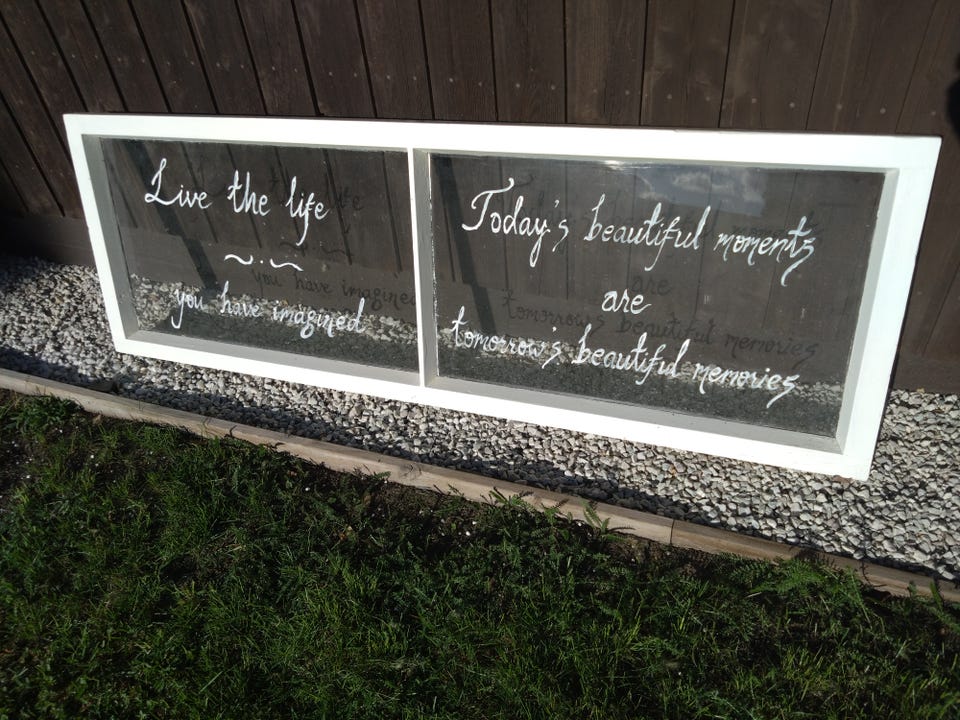 Live the life
you have imagined
Today's beautiful moments
are
tomorrow's beautiful memories